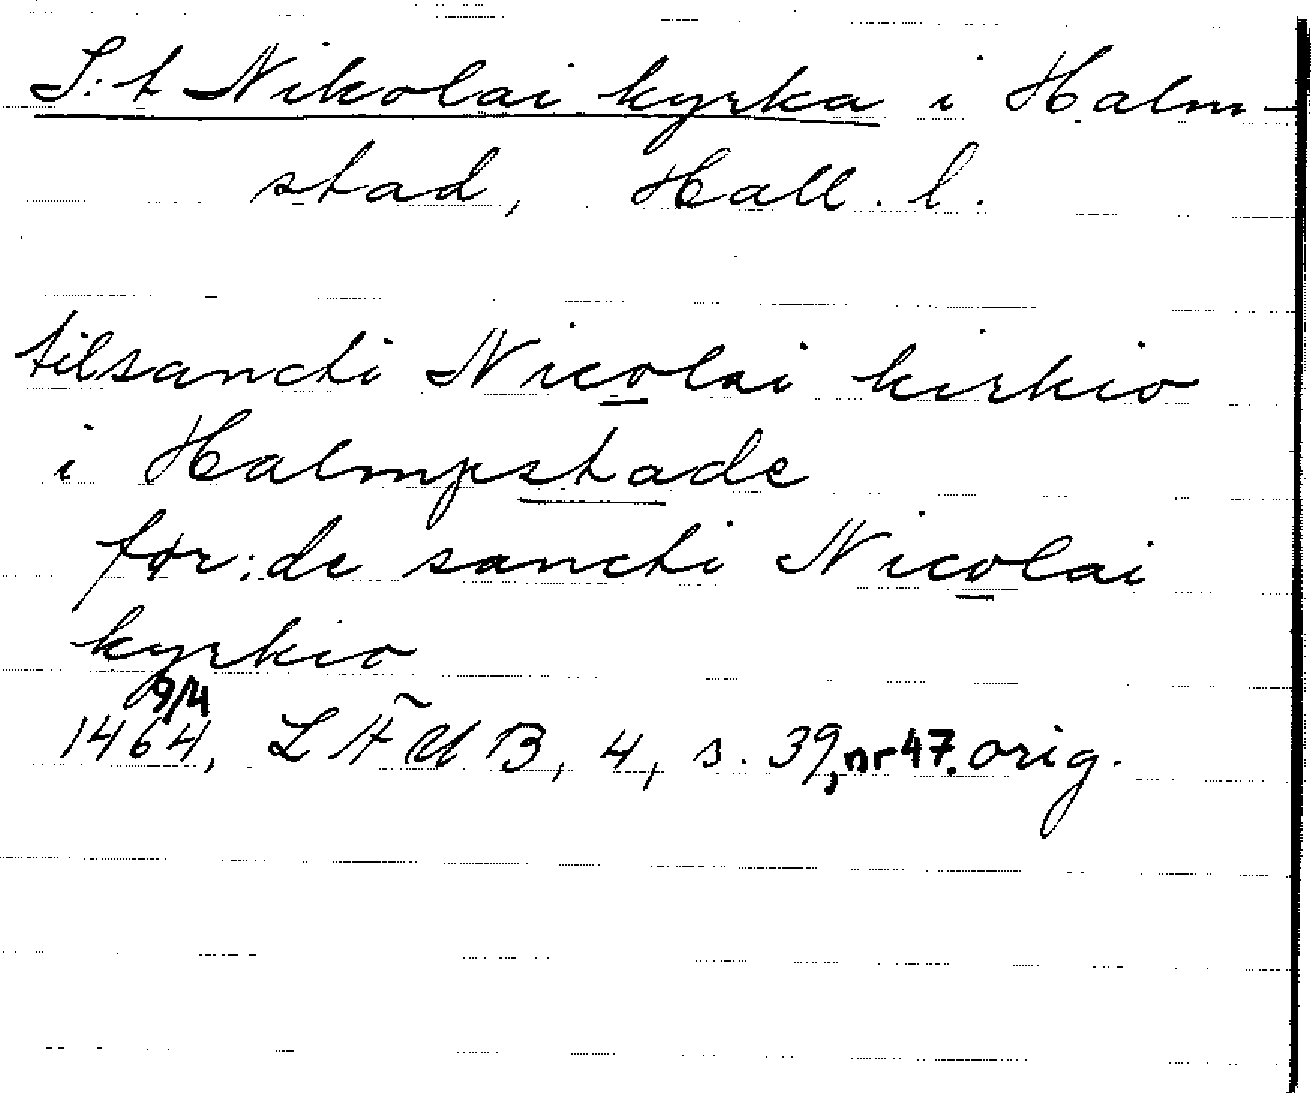 S:t Nikolai kyrka i Halm-
stad, Hall. l.
tilsancti Nicolai kirkio
i Halmpstade
før:de sancti Nicolai
kyrkio
9/4
1464, LÄUB, 4, s. 39, nr 47. orig.